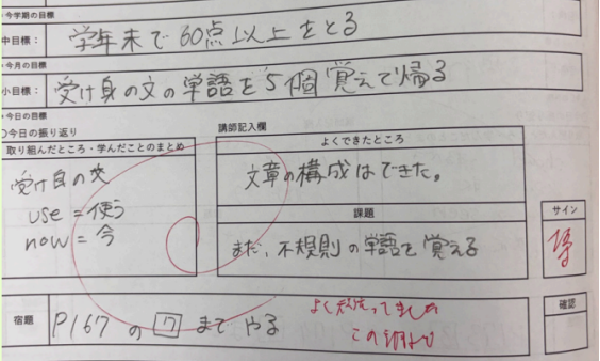 ・今学期の目標
中目標： 学年末で60点以上をとる
・今月の目標
小目標： 受け身の文の単語を5個覚えて帰る
・今日の目標
○今日の振り返り
講師記入欄
取り組んだところ・学んだことのまとめ
受け身の文
use = 使う
now = 今
よくできたところ
文章の構成はできた。
課題
まだ、不規則の単語を覚える
サイン
宿題 P167の7までやる
よく頑張ってました
この調子
確認